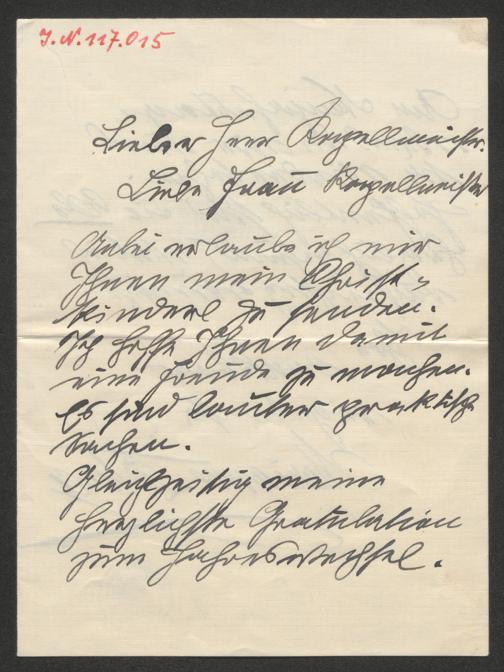 J.N. 117.015
Lieber Herr Kapellmeister.
Liebe Frau Kapellmeister
Anbei erlaube ich mir
Ihnen mein Christ-
kinderl zu senden.
Ich hoffe Ihnen damit
eine Freude zu machen.
Es sind lauter praktische
Sachen.
Gleichzeitig meine
herzlichste Gratulation
zum Jahreswechsel.